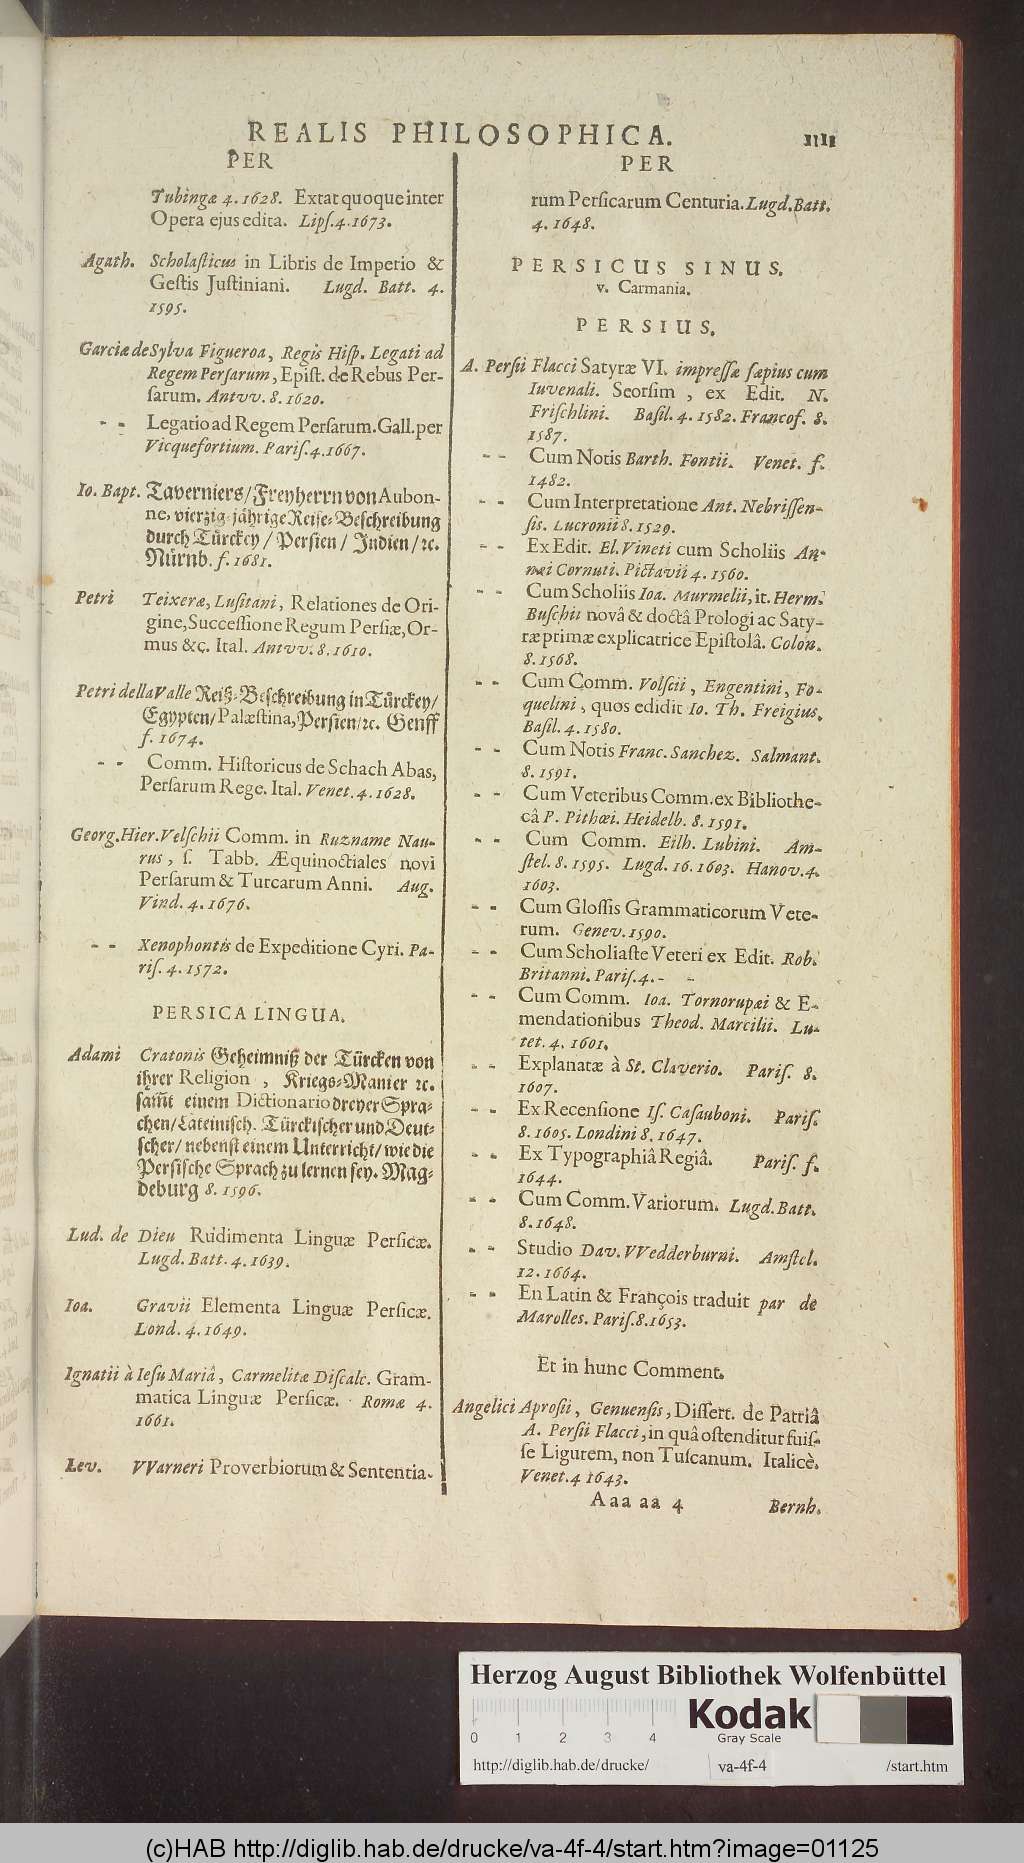 REALIS PHILOSOPHICA. 1111
PER
Tubingæ 4. 1628. Extat quoque inter
Opera ejus edita. Lipſ. 4. 1673.
Agath. Scholaſticus in Libris de Imperio &
Geſtis Juſtiniani. Lugd. Batt. 4.
1595.
Garciæ de Sylva Figueroa, Regis Hiſp. Legati ad
Regem Perſarum, Epiſt. de Rebus Per-
ſarum. Antvv. 8. 1620.
- - Legatio ad Regem Perſarum. Gall. per
Vicquefortium. Pariſ. 4. 1667.
Io. Bapt. Taverniers/ Freyherrn von Aubon-
ne, vierzig-jährige Reiſe-Beſchreibung
durch Türckey / Perſien / Indien / ꝛc.
Nürnb. f. 1681.
Petri Teixeræ, Luſitani, Relationes de Ori-
gine, Succeſſione Regum Perſiæ, Or-
mus &c. Ital. Antvv. 8. 1610.
Petri della Valle Reiß-Beſchreibung in Türckey/
Egypten/ Palæſtina, Perſien/ ꝛc. Genff
f. 1674.
- - Comm. Hiſtoricus de Schach Abas,
Perſarum Rege. Ital. Venet. 4. 1628.
Georg. Hier. Velſchii Comm. in Ruzname Nau-
rus, ſ. Tabb. Æquinoctiales novi
Perſarum & Turcarum Anni. Aug.
Vind. 4. 1676.
- - Xenophontis de Expeditione Cyri. Pa-
riſ. 4. 1572.
PERSICA LINGUA.
Adami Cratonis Geheimniß der Türcken von
ihrer Religion , Kriegs-Manier ꝛc.
ſam̃t einem Dictionario dreyer Spra-
chen/ Lateiniſch. Türckiſcher und Deut-
ſcher/ nebenſt einem Unterricht/ wie die
Perſiſche Sprach zu lernen ſey. Mag-
deburg 8. 1596.
Lud. de Dieu Rudimenta Linguæ Perſicæ.
Lugd. Batt. 4. 1639.
Ioa. Gravii Elementa Linguæ Perſicæ.
Lond. 4. 1649.
Ignatii à Ieſu Mariâ, Carmelitæ Diſcalc. Gram-
matica Linguæ Perſicæ. Romæ 4.
1661.
Lev. VVarneri Proverbiorum & Sententia-
PER
rum Perſicarum Centuria. Lugd. Batt.
4. 1648.
PERSICUS SINUS.
v. Carmania.
PERSIUS.
A. Perſii Flacci Satyræ VI. impreſſæ ſæpius cum
Iuvenali. Seorſim , ex Edit. N.
Friſchlini. Baſil. 4. 1582. Francof. 8.
1587.
- - Cum Notis Barth. Fontii. Venet. f.
1482.
- - Cum Interpretatione Ant. Nebriſſen-
ſis. Lucronii 8. 1529.
- - Ex Edit. El. Vineti cum Scholiis An-
næi Cornuti. Pictavii 4. 1560.
- - Cum Scholiis Ioa. Murmelii, it. Herm.
Buſchii novâ & doctâ Prologi ac Saty-
ræ primæ explicatrice Epiſtolâ. Colon.
8. 1568.
- - Cum Comm. Volſcii, Engentini, Fo-
quelini, quos edidit Io. Th. Freigius.
Baſil. 4. 1580.
- - Cum Notis Franc. Sanchez. Salmant.
8. 1591.
- - Cum Veteribus Comm. ex Bibliothe-
câ P. Pithœi. Heidelb. 8. 1591.
- - Cum Comm. Eilh. Lubini. Am-
ſtel. 8. 1595. Lugd. 16. 1603. Hanov. 4.
1603.
- - Cum Gloſſis Grammaticorum Vete-
rum. Genev. 1590.
- - Cum Scholiaſte Veteri ex Edit. Rob.
Britanni. Pariſ. 4. - -
- - Cum Comm. Ioa. Tornorupæi & E-
mendationibus Theod. Marcilii. Lu-
tet. 4. 1601.
- - Explanatæ à St. Claverio. Pariſ. 8.
1607.
- - Ex Recenſione Iſ. Caſauboni. Pariſ.
8. 1605. Londini 8. 1647.
- - Ex Typographiâ Regiâ. Pariſ. f.
1644.
- - Cum Comm. Variorum. Lugd. Batt.
8. 1648.
- - Studio Dav. VVedderburni. Amſtel.
12. 1664.
- - En Latin & François traduit par de
Marolles. Pariſ. 8. 1653.
Et in hunc Comment.
Angelici Aproſii, Genuenſis, Diſſert. de Patriâ
A. Perſii Flacci, in quâ oſtenditur fuiſ-
ſe Ligurem, non Tuſcanum. Italicè.
Venet. 4 1643.
Aaa aa 4 Bernh.
Herzog August Bibliothek Wolfenbüttel
Kodak
Gray Scale
0 1 2 3 4
http://diglib.hab.de/drucke/ va-4f-4 /start.htm
(c)HAB http://diglib.hab.de/drucke/va-4f-4/start.htm?image=01125